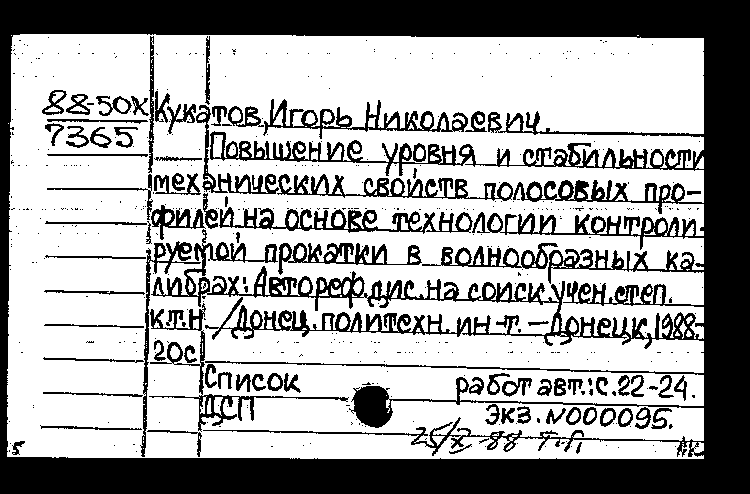 88-50X Кукатов, Игорь Николаевич.
7365
Повышение уровня и стабильности
механических свойств полосовых про-
филей на основе технологии контроли-
руемой прокатки в волнообразных ка-
либрах: Автореф.дис.на соиск.учен.степ.
к.т.н. /Донец.политехн.ин-т.-Донецк,1988.-
20с
Список работ авт.:с.22-24.
ДСП экз.N000095.
25/X-88 т.п.
5 АК